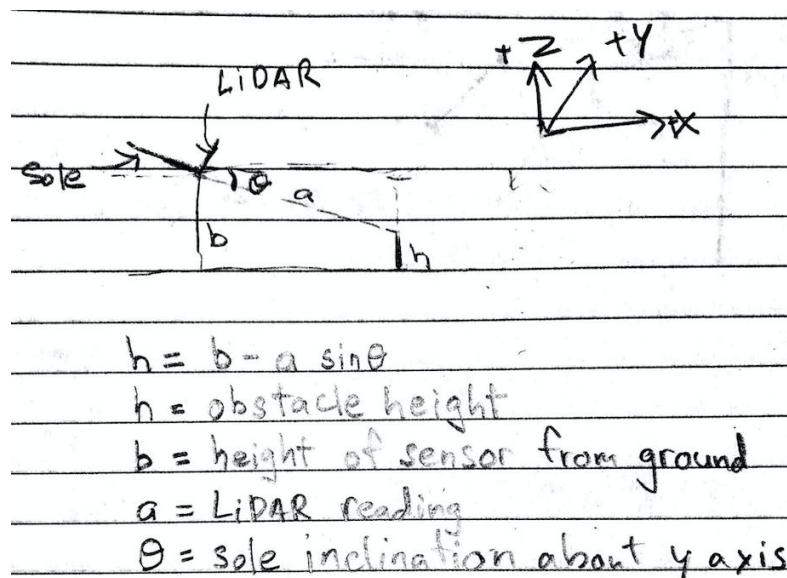 +Z +Y
LiDAR
+X
Sole θ
a
b
h
h = b - a sinθ
h = obstacle height
b = height of sensor from ground
a = LiDAR reading
θ = sole inclination about y axis